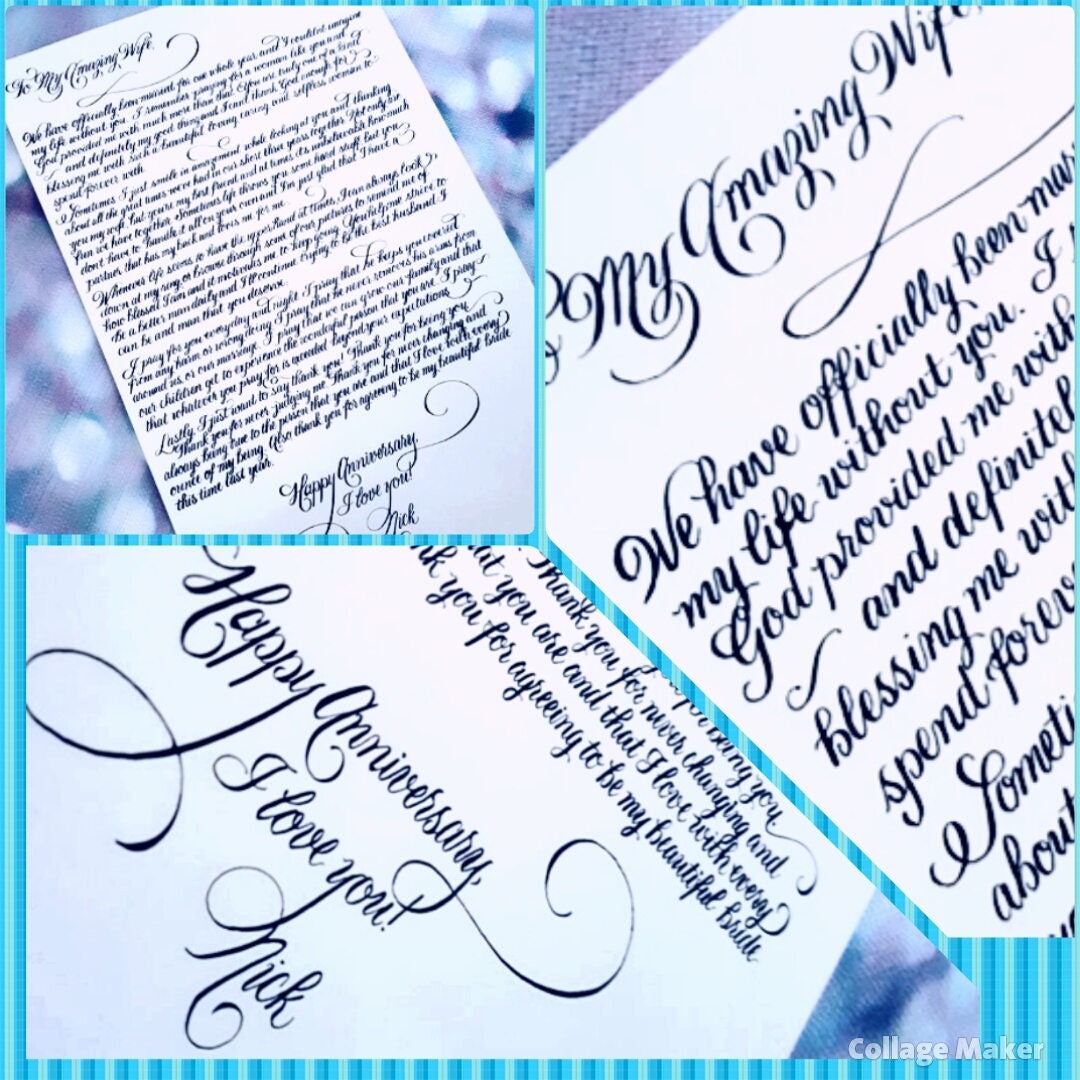 To My Amazing Wife,
We have officially been married for one whole year and I couldn't imagine
my life without you. I remember praying for a woman like you and
God provided me with much more than that. You are truly one of a kind
and definitely my good thing and I can't thank God enough for
blessing me with such a beautiful, loving, caring and selfless woman to
spend forever with.
Sometimes I just smile in amazement while looking at you and thinking
about all the great times we've had in our short three years together. Not only are
you my wife, but you're my best friend and at times, it's unbelievable how much
fun we have together. Sometimes life throws you some hard stuff, but you
don't have to handle it all on your own and I'm just glad that I have a
partner that has my back and loves me for me.
Whenever life seems to have the upper hand at times, I can always look
down at my ring or browse through some of our pictures to remind me of
how blessed I am and it motivates me to keep going. You help me strive to
be a better man daily and I'll continue trying to be the best husband I
can be and man that you deserve.
I pray for you everyday and night. I pray that he keeps you covered
from any harm or wrong doing. I pray that he never removes his arms from
around us or our marriage. I pray that we can grow our family and that
our children get to experience the wonderful person that you are. I pray
that whatever you pray for is exceeded beyond your expectations.
Lastly, I just want to say thank you! Thank you for being you.
Thank you for never judging me. Thank you for never changing and
always being true to the person that you are and that I love with every
ounce of my being. Also thank you for agreeing to be my beautiful bride
this time last year.
Happy Anniversary,
I love you!
Nick
My Amazing Wife,
We have officially been mar
my life without you. I
God provided me with
and definitel
blessing me wit
spend forev
Someti
abou
being you.
Thank you for never changing and
at you are and that I love with every
nk you for agreeing to be my beautiful bride
Happy Anniversary,
I love you!
Nick
Collage Maker